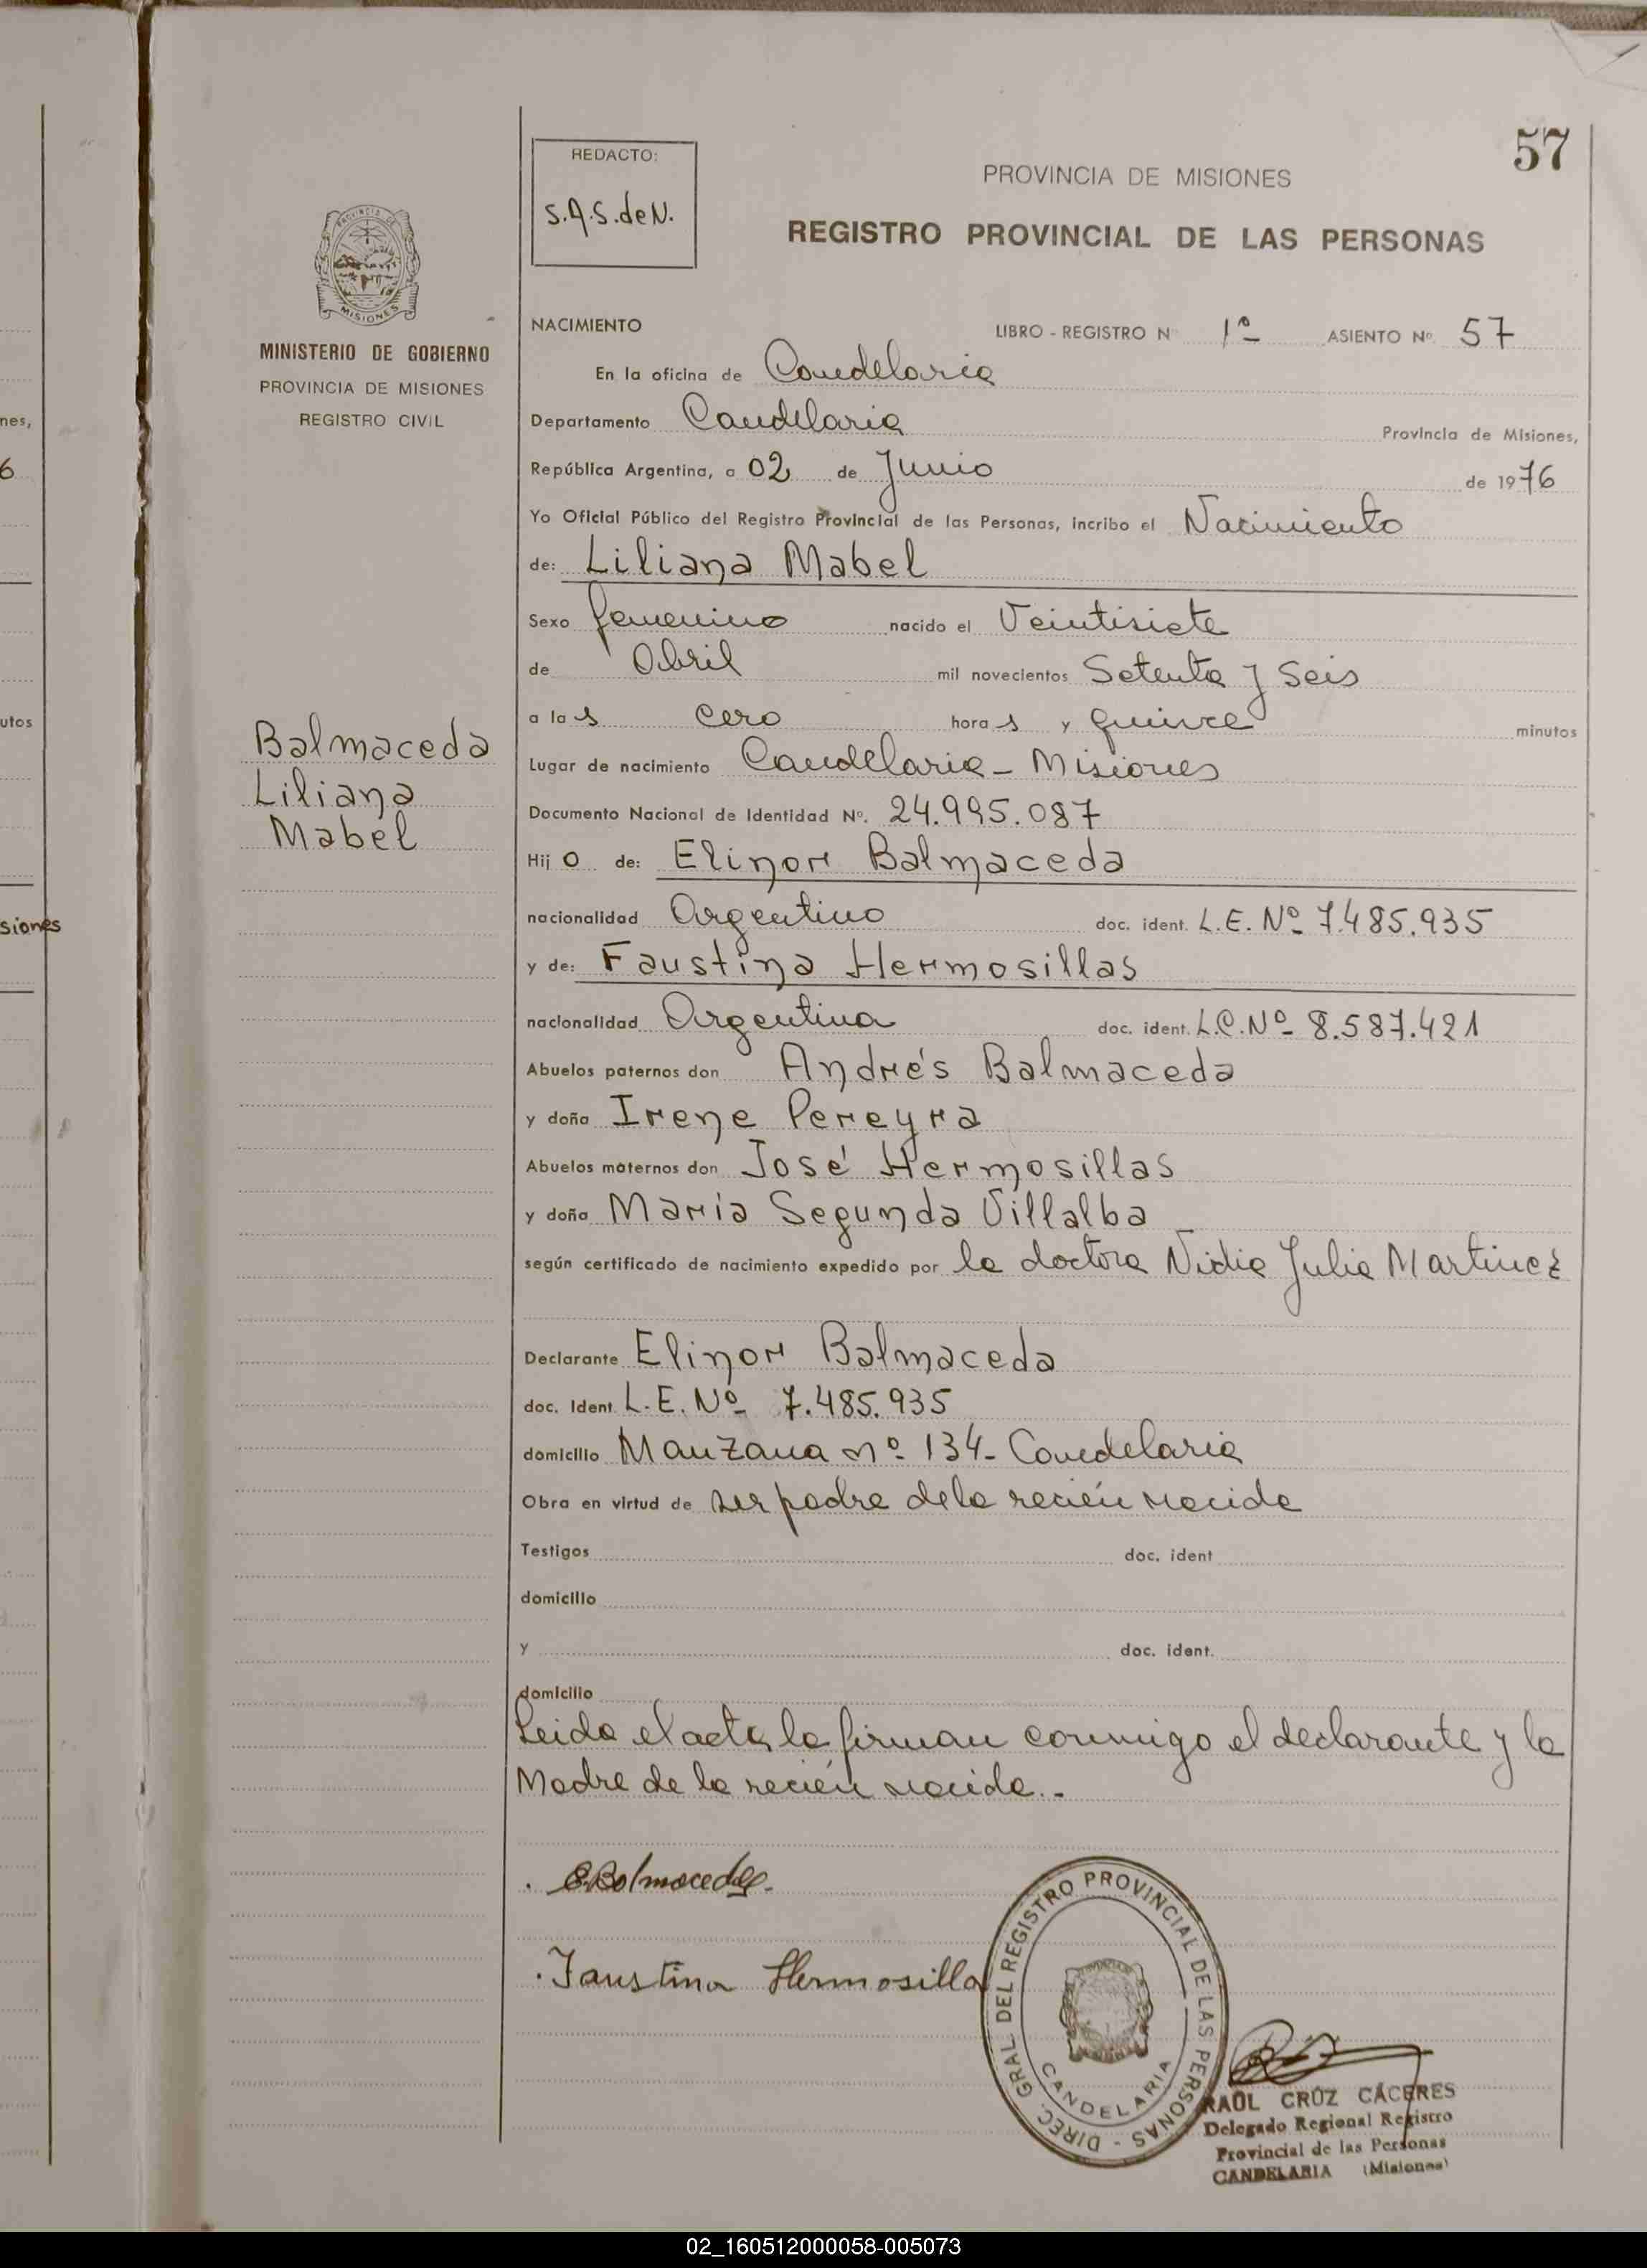 57
REDACTO:
S.A.S.deN.
PROVINCIA DE MISIONES
REGISTRO PROVINCIAL DE LAS PERSONAS
PROVINCIA DE
MISIONES
MINISTERIO DE GOBIERNO
PROVINCIA DE MISIONES
REGISTRO CIVIL
Balmaceda
Liliana
Mabel
NACIMIENTO LIBRO - REGISTRO Nº 1º ASIENTO Nº 57
En la oficina de Candelaria
Departamento Candelaria Provincia de Misiones,
República Argentina, a 02 de Junio de 1976
Yo Oficial Público del Registro Provincial de las Personas, incribo el Nacimiento
de: Liliana Mabel
Sexo femenino nacido el Veintisiete
de Abril mil novecientos Setenta y Seis
a las cero horas y quince minutos
Lugar de nacimiento Candelaria - Misiones
Documento Nacional de Identidad Nº. 24.995.087
Hijo de: Elinor Balmaceda
nacionalidad Argentino doc. ident. L.E. Nº 7.485.935
y de: Faustina Hermosillas
nacionalidad Argentina doc. ident. L.C. Nº 8.587.421
Abuelos paternos don Andrés Balmaceda
y doña Irene Pereyra
Abuelos maternos don José Hermosillas
y doña María Segunda Villalba
según certificado de nacimiento expedido por la doctora Nidia Julia Martinez
Declarante Elinor Balmaceda
doc. Ident. L.E. Nº 7.485.935
domicilio Manzana nº 134- Candelaria
Obra en virtud de ser padre de la recién nacida
Testigos doc. ident
domicilio
y doc. ident.
domicilio
Leída el acta, la firman conmigo el declarante y la
Madre de la recién nacida.-
E Balmaceda.
Faustina Hermosilla
DIREC. GRAL. DEL REGISTRO PROVINCIAL DE LAS PERSONAS -
CANDELARIA
RAÚL CRUZ CÁCERES
Delegado Regional Registro
Provincial de las Personas
CANDELARIA (Misiones)
nes,
6
utos
siones
02_160512000058-005073